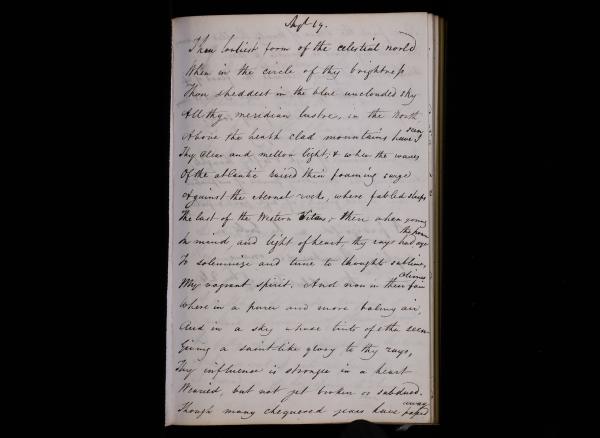 Augt 19.
Thou loveliest form of the celestial world
When in the circle of thy brightness
Thou sheddest in the blue unclouded sky
All thy meridian lustre, in the North
Above the heath clad mountains have I seen
Thy clear and mellow light, & when the waves
Of the atlantic raised their foaming surge
Against the eternal rocks, where fabled sleeps
The last of the Western Titans; then when young
In mind, and light of heart thy rays had
the power
To solemnise and tune to thoughts sublime,
My vagrant spirit. And now in these fair
climes
Where in a purer and more balmy air,
And in a sky whose tints of
Giving a saint-like glory to thy rays,
Thy influence is stronger in a heart
Wearied, but not yet broken or subdued.
Though many chequered years have passed
away